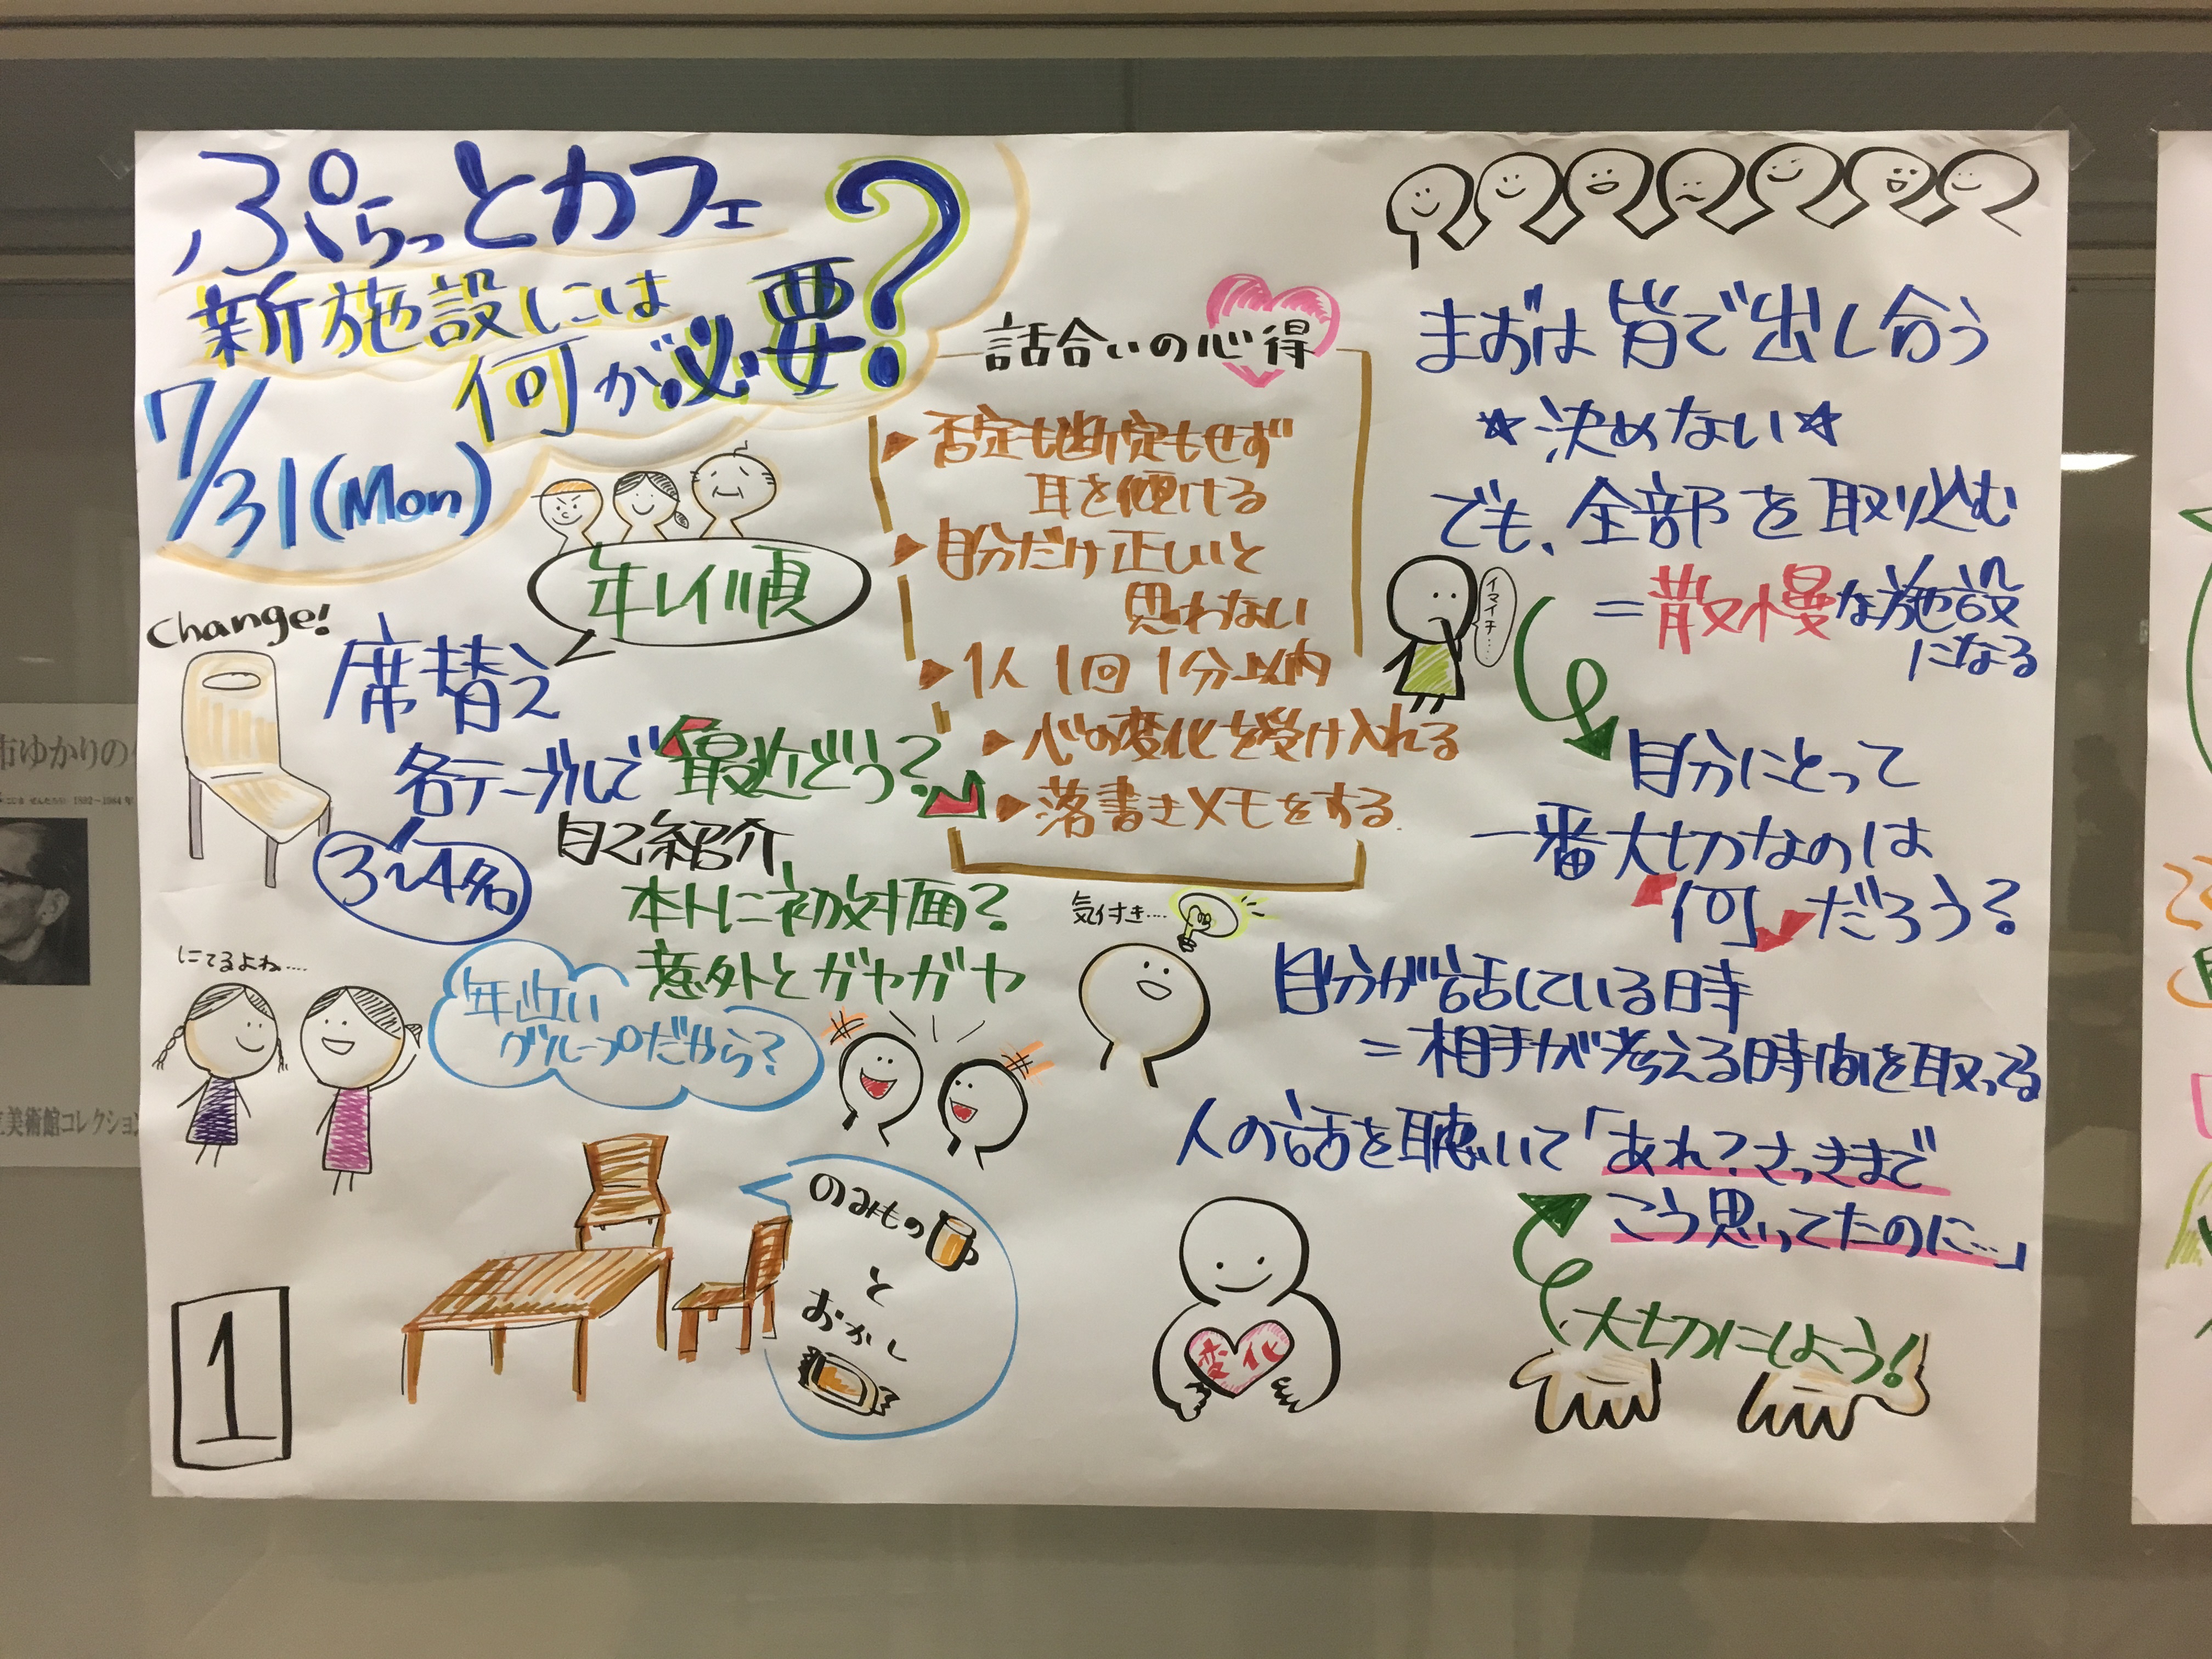 ぷらっとカフェ
新施設には
何が必要?
7/31(Mon)
年レイ順
Change!
席替え
各テーブルで「最近どう?」
3〜4名
自己紹介
本トに初対面?
意外とガヤガヤ
にてるよね....
年近い
グループだから?
のみもの
と
おかし
1
話合いの心得
否定も断定もせず
耳を傾ける
自分だけ正しいと
思わない
1人1回1分以内
心の変化を受け入れる
落書きメモをする.
気付き....
まずは皆で出し合う
★決めない★
でも、全部を取り込む
=散慢な施設
になる
イマイチ....
自分にとって
一番大切なのは
「何」だろう?
自分が話している時
=相手が考える時間を取ってる
人の話を聴いて「あれ?さっきまで
こう思ってたのに...」
変化
大切にしよう!
市ゆかりの
1892-1984年
美術館コレクション